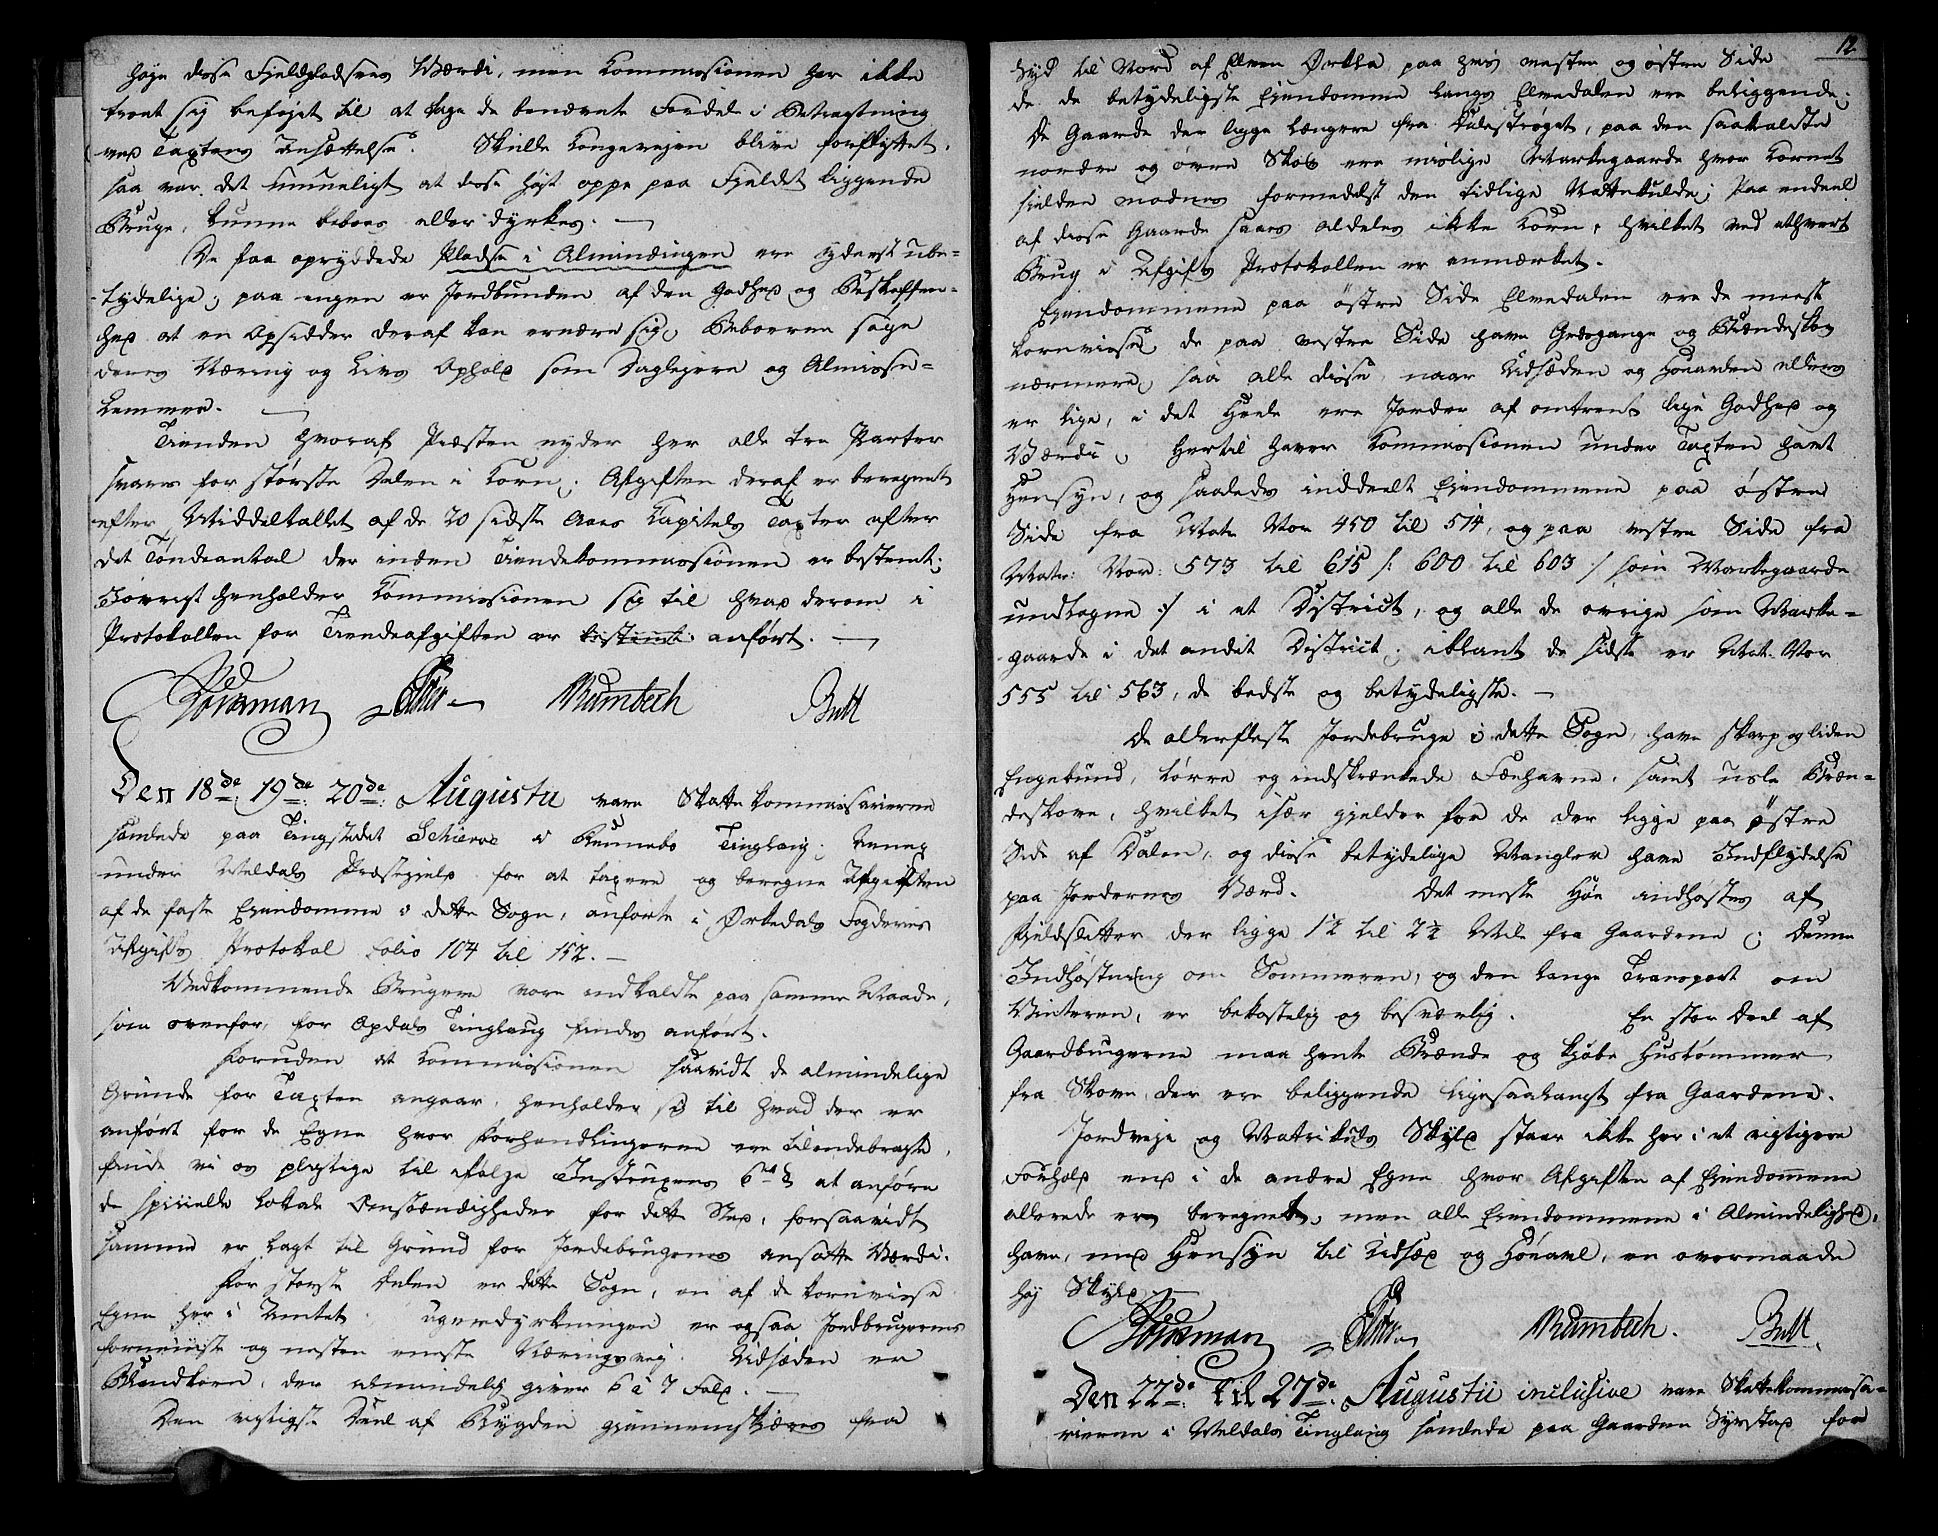 høje disse Fjeldpladsers Værdi, men Kommissionen har ikke
troet sig beføjet til at tage de benævnte Fordele i Betragtning
ved Taxtens Ansættelse. Skulde Kongevejen blive forflyttet,
saa var det umueligt at disse højt oppe paa Fjeldet liggende
Bruge, kunne beboes eller dyrkes. —
De faa opryddede Pladse i Almindingen ere yderst ube-
tydelige; paa ingen er Jordbunden af den Godhed og Beskaffen-
hed at en Opsidder deraf kan ernære sig; Beboerne søge
deres Næring og Livs Ophold som Daglejere og Almisse-
lemmer. —
Tienden hvoraf Præsten nyder her alle tre Parter
svares for største Delen i Korn; Afgiften deraf er beregnet
efter Middeltallet af de 20 sidste Aars Kapitels Taxter efter
det Tøndeantal der inden Tiendekommissionen er bestemt;
Iøvrigt henholder Kommissionen sig til hvad derom i
Protokollen for Tiendeafgiften er bestemt anført. —
Rambech Bull
Den 18de 19de 20de Augusti vare Skattekommissairerne
samlede paa Tingstedet Schierve i Rennebo Tinglaug, Annex
under Meldals Præstegield for at taxere og beregne Afgiften
af de faste Ejendomme i dette Sogn, anførte i Ørkedals Fogderies
Afgifts Protokol Folio 104 til 152. —
Vedkommende Brugere vare indkaldte paa samme Maade,
som ovenfor, for Opdals Tinglaug findes anført.
Foruden at Kommissionen saavidt de almindelige
Grunde for Taxten angaar, henholder sig til hvad der er
anført for de Egne hvor Forhandlingerne ere tilendebragte,
finde vi os pligtige til ifølge Instruxens 6te § at anføre
de specielle lokale Omstændigheder for dette Sted, forsaavidt
samme er lagt til Grund for Jordebrugenes ansatte Værdi.
For største Delen er dette Sogn, en af de kornvisse
Egne her i Amtet. Agerdyrkningen er ogsaa Jordbrugernes
fornemste og næsten eneste Næringsvej. Udsæden er
Blandkorn, der almindelig giver 6 à 7 Fold. —
Den vigtigste Deel af Bygden giennemskjæres fra
12
Syd til Nord af Elven Ørkla, paa hvis vestre og østre Side
de de betydeligste Ejendomme langs Elvedalen ere beliggende;
De Gaarde der ligge længere fra Dalestrøget, paa den saakaldte
nordre og øvre Skov ere mislige Markegaarde hvor Kornet
sielden modnes formedelst den tidlige Nattekulde; Paa endeel
af disse Gaarde saaes aldeles ikke Korn, hvilket ved ethvert
Brug i Afgifts Protokollen er anmærket.
Ejendommene paa østre Side Elvedalen ere de meest
kornvisse, de paa vestre Side have Græsgange og Brændeskov
nærmere, saa alle disse, naar Udsæden og Høeavlen ellers
er lige, i det Heele ere Jorder af omtrent lige Godhed og
Værdi; Hertil haver Kommissionen under Taxten havt
Hensyn, og saaledes inddeelt Ejendommene paa østre
Side fra Matr Nor 450 til 514, og paa vestre Side fra
Matr: Nor: 573 til 615 /: 600 til 603 :/ som Markegaarde
undtagne :/ i et District, og alle de øvrige som Marke-
gaarde i det andet District; iblant de sidste er Mat. Nor
555 til 563, de bedste og betydeligste. —
De allerfleste Jordebruge i dette Sogn, have skarp og liden
Engebund, tørre og indskrænkede Fæehavne, samt usle Bræn-
deskove, hvilket især gjelder for de der ligge paa østre
Side af Dalen, og disse betydelige Mangler have Indflydelse
paa Jordernes Værd. Det meste Høe indhøstes af
Fieldsletter der ligge 1½ til 2½ Mile fra Gaardene; Denne
Indhøstning om Sommeren, og den lange Transport om
Vinteren, er bekostelig og besværlig. En stor Deel af
Gaardbrugerne maa hente Brænde og kjøbe Hustømmer
fra Skove, der ere beliggende ligesaalangt fra Gaardene.
Jordveje og Matrikuls Skyld staar ikke her i et rigtigere
Forhold end i de andre Egne hvor Afgiften af Ejendommene
allerede er beregnet, men alle Ejendommene i Almindelighed,
have, med Hensyn til Udsæd og Høeavl, en overmaade
høj Skyld. —
Rambech. Bull
Den 22de til 27de Augustii inclusive vare Skattekommissa-
rierne i Meldals Tinglaug samlede paa Gaarden Syrstad for